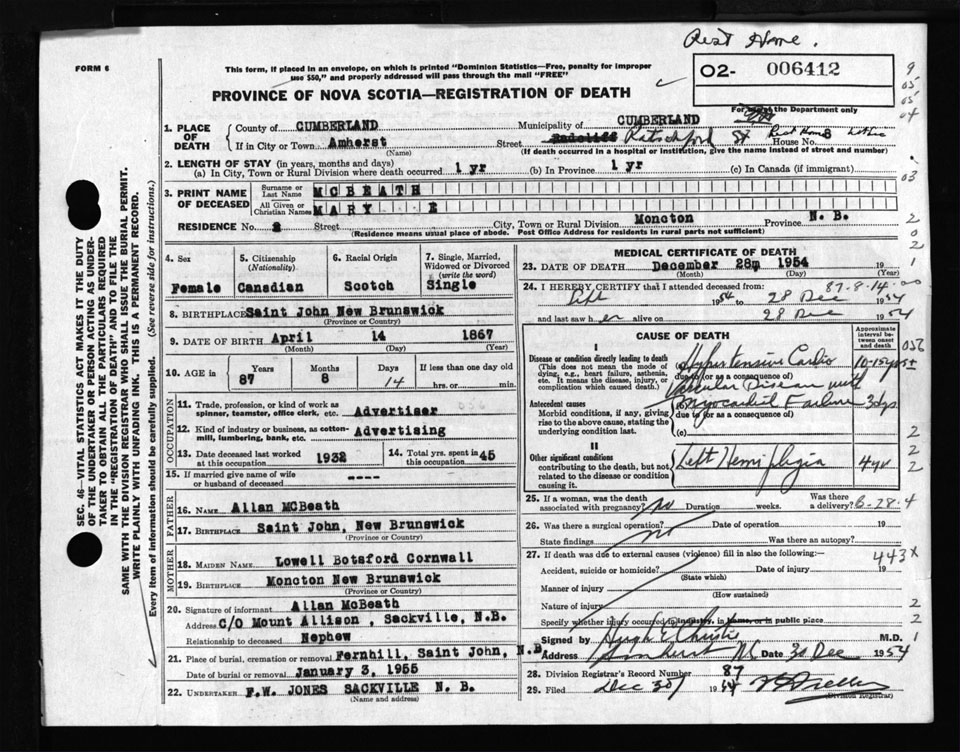 Rest Home.
FORM 6
This form, if placed in an envelope, on which is printed "Dominion Statistics—Free, penalty for improper
use $50," and properly addressed will pass through the mail "FREE"
02- 006412
PROVINCE OF NOVA SCOTIA—REGISTRATION OF DEATH
For use of the Department only
1. PLACE OF DEATH
County of CUMBERLAND Municipality of CUMBERLAND
If in City or Town Amherst Street Ratchford St House No. 8
(Name) (If death occurred in a hospital or institution, give the name instead of street and number)
2. LENGTH OF STAY (in years, months and days)
(a) In City, Town or Rural Division where death occurred 1 yr (b) In Province 1 yr (c) In Canada (if immigrant)
3. PRINT NAME OF DECEASED
Surname or Last Name MCBEATH
All Given or Christian Names MARY E
RESIDENCE No. 2 Street City, Town or Rural Division Moncton Province N. B.
(Residence means usual place of abode. Post Office Address for residents in rural parts not sufficient)
4. Sex
Female
5. Citizenship (Nationality)
Canadian
6. Racial Origin
Scotch
7. Single, Married, Widowed or Divorced (write the word)
Single
8. BIRTHPLACE Saint John New Brunswick
(Province or Country)
9. DATE OF BIRTH April 14 1867
(Month) (Day) (Year)
10. AGE in Years Months Days If less than one day old
87 8 14 hrs. or min.
OCCUPATION
11. Trade, profession, or kind of work as
spinner, teamster, office clerk, etc. Advertiser
12. Kind of industry or business, as cotton-
mill, lumbering, bank, etc. Advertising
13. Date deceased last worked
at this occupation 1932
14. Total yrs. spent in
this occupation 45
15. If married give name of wife
or husband of deceased ----
FATHER
16. NAME Allan MCBeath
17. BIRTHPLACE Saint John, New Brunswick
(Province or Country)
MOTHER
18. MAIDEN NAME Lowell Botsford Cornwall
19. BIRTHPLACE Moncton New Brunswick
(Province or Country)
20. Signature of informant Allan McBeath
Address C/O Mount Allison , Sackville, N.B.
Relationship to deceased Nephew
21. Place of burial, cremation or removal Fernhill, Saint John, N.B
Date of burial or removal January 3, 1955
22. UNDERTAKER F.W. JONES SACKVILLE N. B.
(Name and address)
MEDICAL CERTIFICATE OF DEATH
23. DATE OF DEATH December 28m 1954 19
(Month) (Day) (Year)
24. I HEREBY CERTIFY that I attended deceased from: 87-8-14-00
Sept 1954 to 28 Dec 1954
and last saw her alive on 28 Dec 1954
CAUSE OF DEATH
Approximate interval between onset and death
I
Disease or condition directly leading to death
(This does not mean the mode of
dying, e.g., heart failure, asthenia,
etc. It means the disease, injury, or
complication which caused death.)
(a) Hypertensive Cardio 10-15 yrs
due to (or as a consequence of)
Vascular Disease with
Antecedent causes
Morbid conditions, if any, giving
rise to the above cause, stating the
underlying condition last.
(b) Myocardial Failure 3 dys
due to (or as a consequence of)
(c)
II
Other significant conditions
contributing to the death, but not
related to the disease or condition
causing it.
Left Hemiplegia 4 yr
25. If a woman, was the death
associated with pregnancy? no Duration weeks. Was there a delivery? 6-28-4
26. Was there a surgical operation? no Date of operation 19
State findings Was there an autopsy?
27. If death was due to external causes (violence) fill in also the following:— 443x
Accident, suicide or homicide? Date of injury 19
(State which)
Manner of injury
(How sustained)
Nature of injury
Specify whether injury occurred in industry, in home, or in public place
Signed by Hugh E Christie M.D.
Address Amherst NS Date 30 Dec 1954
28. Division Registrar's Record Number 87
29. Filed Dec 30 1954
(Division Registrar)
SEC. 46—VITAL STATISTICS ACT MAKES IT THE DUTY
OF THE UNDERTAKER OR PERSON ACTING AS UNDER-
TAKER TO OBTAIN ALL THE PARTICULARS REQUIRED
IN THE "REGISTRATION OF DEATH" AND TO FILE THE
SAME WITH THE DIVISION REGISTRAR WHO SHALL ISSUE THE BURIAL PERMIT.
WRITE PLAINLY WITH UNFADING INK. THIS IS A PERMANENT RECORD.
Every item of information should be carefully supplied. (See reverse side for instructions.)